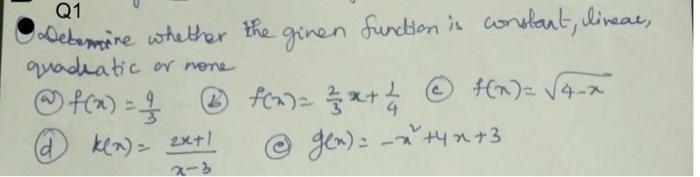 Q1
Determine whether the given function is constant, linear,
quadratic or none
ⓐ f(x) = 4/3 ⓑ f(x) = 2/3 x + 1/4 ⓒ f(x) = √(4-x)
ⓓ k(x) = (2x+1)/(x-3) ⓔ g(x) = -x² + 4x + 3